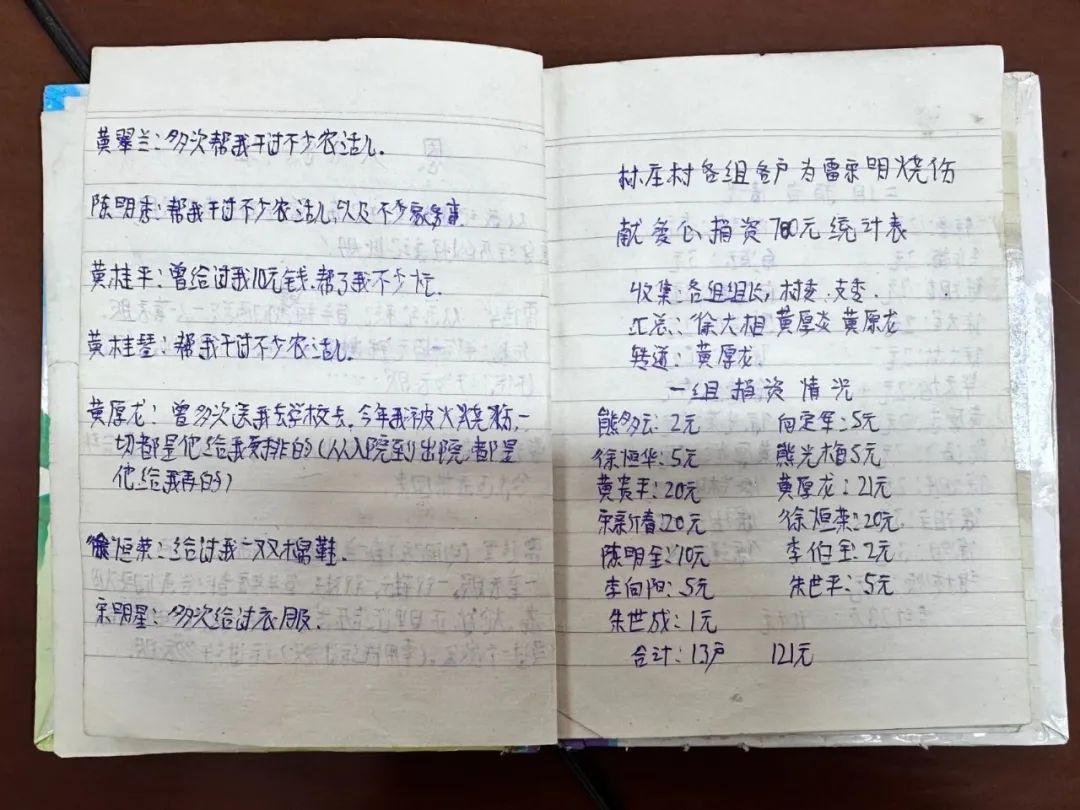 黄翠兰：多次帮我干过不少农活儿.
陈明秀：帮我干过不少农活儿以及不少家务事.
黄桂平：曾给过我10元钱.帮了我不少忙.
黄桂琴：帮我干过不少农活儿.
黄厚龙：曾多次送我去学校去.今年我被火烧伤,一
切都是他给我安排的(从入院到出院都是
他给我弄的)
徐恒荣：给过我一双棉鞋.
宋明星：多次给过衣服.
林庄村各组各户为雷宗明烧伤
献爱心捐资700元统计表
收集：各组组长,村委.支委.
汇总：徐大相 黄厚炎 黄厚龙
转送：黄厚龙.
一组捐资情况
熊多云：2元 向定军：5元
徐恒华：5元 熊光梅5元
黄贵平：20元 黄厚龙：21元
宋新春：20元 徐恒荣：20元.
陈明全：10元 李伯全：2元
李向阳：5元 朱世平：5元
朱世成：1元
合计：13户 121元